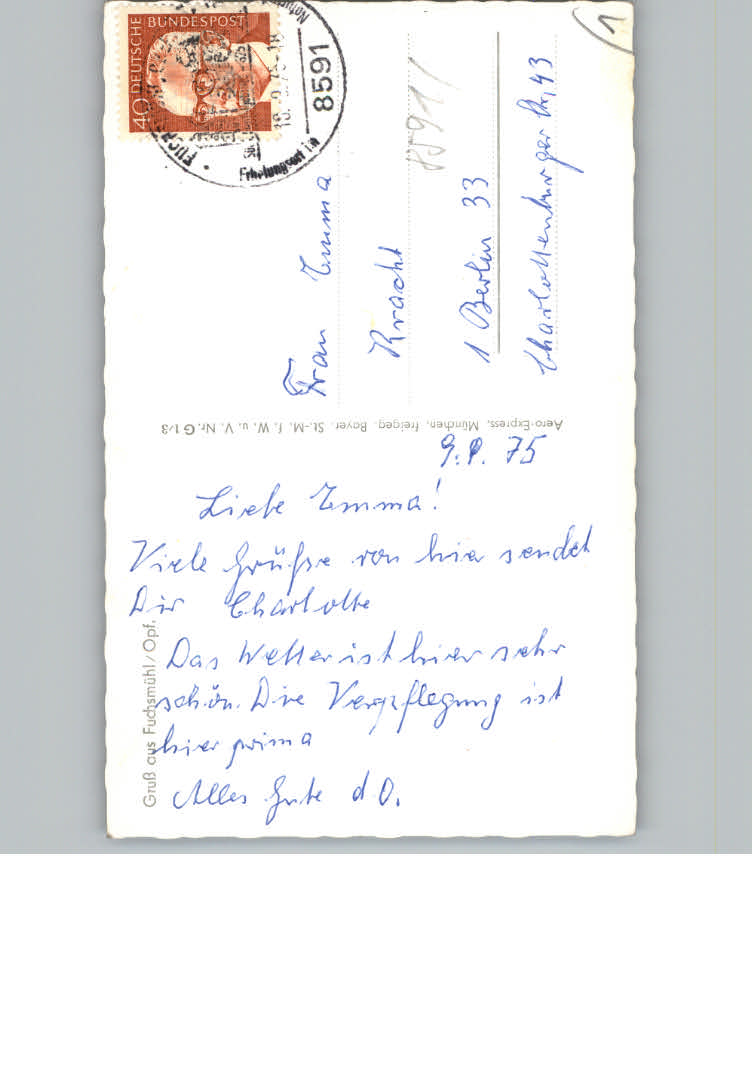 40 DEUTSCHE BUNDESPOST
8591
Erholungsort im
1
8591/
Frau Emma
Kracht
1 Berlin 33
Charlottenburger Str. 43
Aero-Express, München, freigeg. Bayer. St.-M. f. W. u. V. Nr. G 1/3
9.8.75
Liebe Emma!
Viele Grüße von hier sendet
Dir Charlotte
Das Wetter ist hier sehr
schön. Die Verpflegung ist
hier prima
Alles Gute d. O.
Gruß aus Fuchsmühl/Opf.